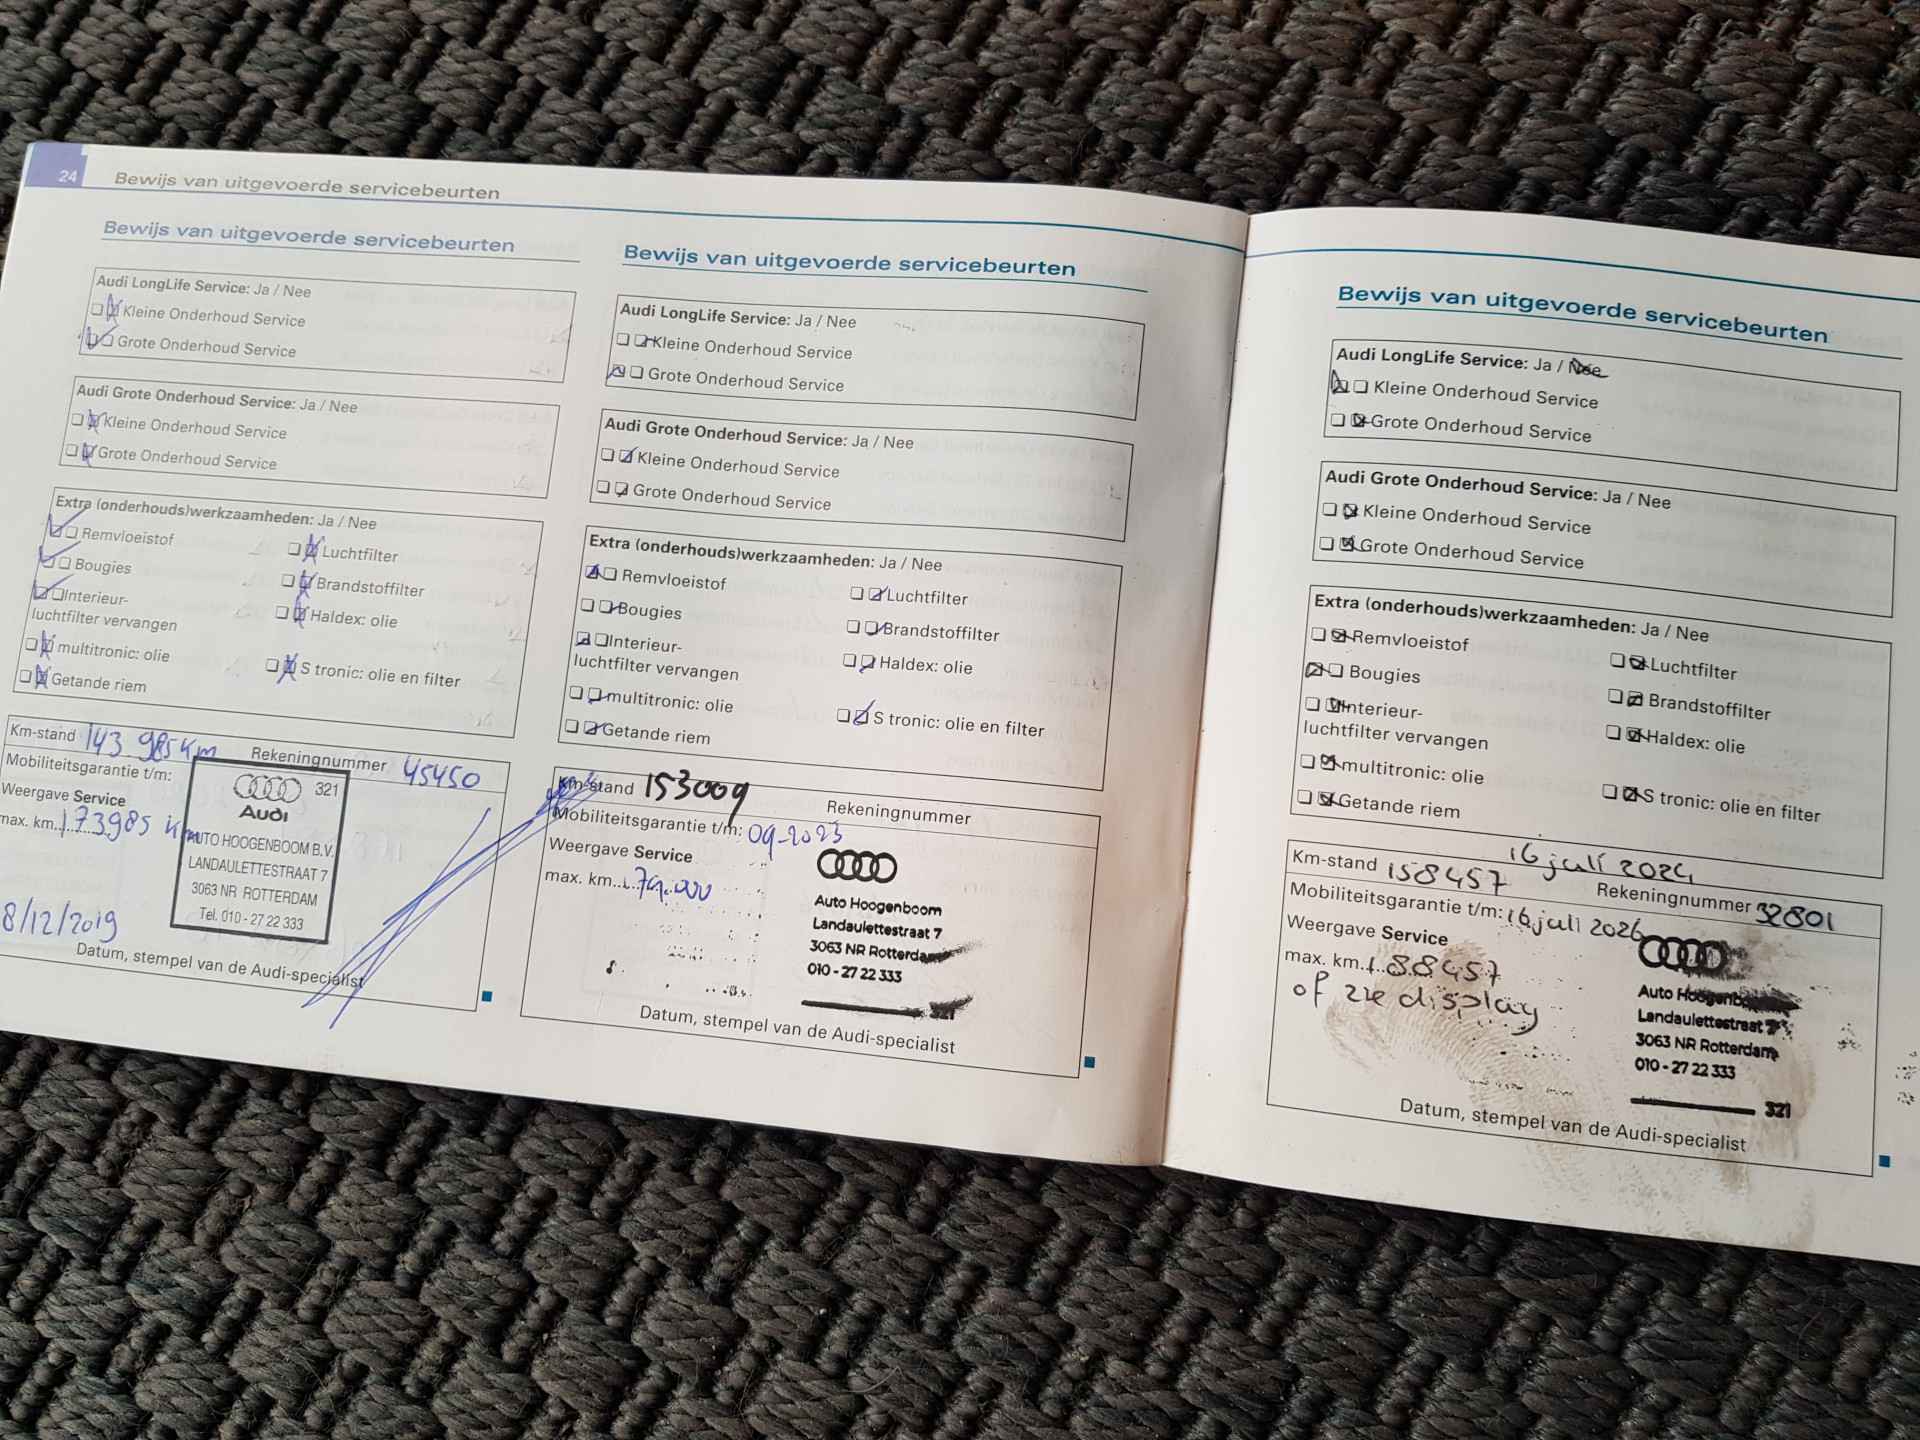 24
Bewijs van uitgevoerde servicebeurten
Bewijs van uitgevoerde servicebeurten
Audi LongLife Service: Ja / Nee
Kleine Onderhoud Service
Grote Onderhoud Service
Audi Grote Onderhoud Service: Ja / Nee
Kleine Onderhoud Service
Grote Onderhoud Service
Extra (onderhouds)werkzaamheden: Ja / Nee
Remvloeistof
Bougies
Interieur-
luchtfilter vervangen
multitronic: olie
Getande riem
Luchtfilter
Brandstoffilter
Haldex: olie
S tronic: olie en filter
Km-stand 143 985 km
Rekeningnummer 45450
Mobiliteitsgarantie t/m:
Weergave Service
max. km. 173985 km
321
Audi
AUTO HOOGENBOOM B.V.
LANDAULETTESTRAAT 7
3063 NR ROTTERDAM
Tel. 010 - 27 22 333
8/12/2019
Datum, stempel van de Audi-specialist
Bewijs van uitgevoerde servicebeurten
Audi LongLife Service: Ja / Nee
Kleine Onderhoud Service
Grote Onderhoud Service
Audi Grote Onderhoud Service: Ja / Nee
Kleine Onderhoud Service
Grote Onderhoud Service
Extra (onderhouds)werkzaamheden: Ja / Nee
Remvloeistof
Bougies
Interieur-
luchtfilter vervangen
multitronic: olie
Getande riem
Luchtfilter
Brandstoffilter
Haldex: olie
S tronic: olie en filter
Km-stand 153009
Rekeningnummer
Mobiliteitsgarantie t/m: 09-2023
Weergave Service
max. km.
Auto Hoogenboom
Landaulettestraat 7
3063 NR Rotterdam
010 - 27 22 333
321
Datum, stempel van de Audi-specialist
Bewijs van uitgevoerde servicebeurten
Audi LongLife Service: Ja / Nee
Kleine Onderhoud Service
Grote Onderhoud Service
Audi Grote Onderhoud Service: Ja / Nee
Kleine Onderhoud Service
Grote Onderhoud Service
Extra (onderhouds)werkzaamheden: Ja / Nee
Remvloeistof
Bougies
Interieur-
luchtfilter vervangen
multitronic: olie
Getande riem
Luchtfilter
Brandstoffilter
Haldex: olie
S tronic: olie en filter
16 juli 2024
Km-stand 158457
Rekeningnummer 32801
Mobiliteitsgarantie t/m: 16 juli 2026
Weergave Service
max. km. 188457
of zie display
Auto Hoogenboom
Landaulettestraat 7
3063 NR Rotterdam
010 - 27 22 333
321
Datum, stempel van de Audi-specialist